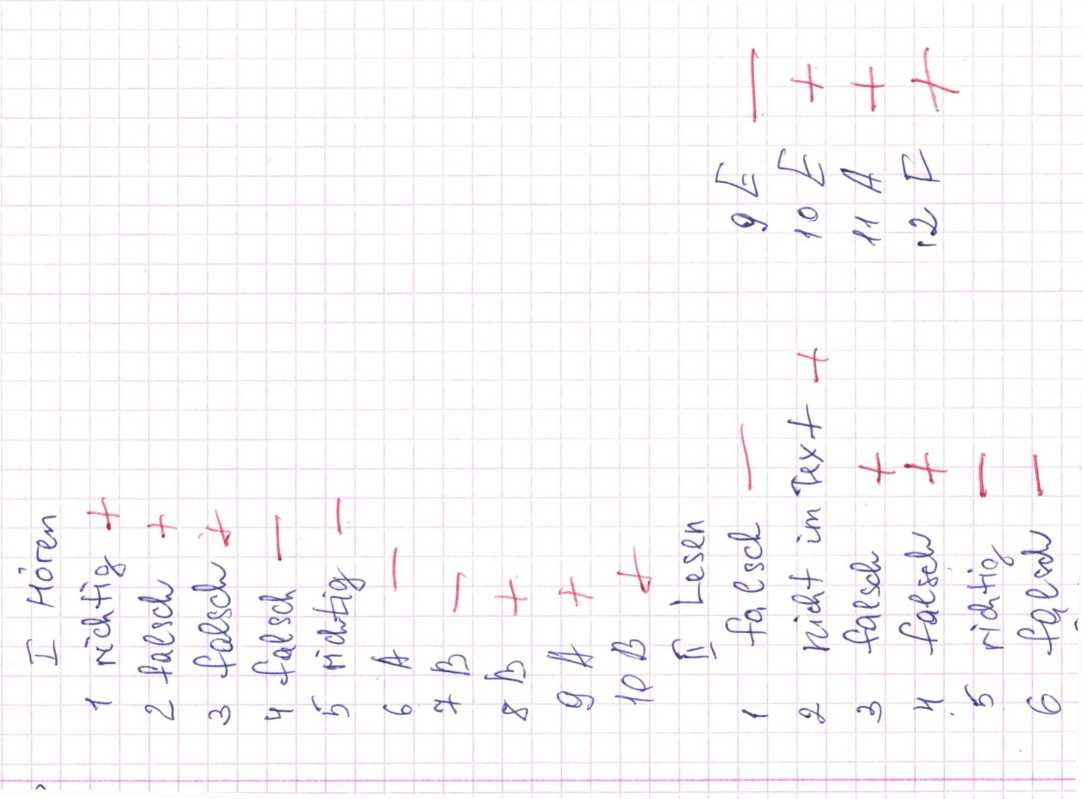 I Hören
1 richtig +
2 falsch +
3 falsch +
4 falsch —
5 richtig —
6 A —
7 B —
8 B +
9 A +
10 B +
II Lesen
1 falsch —
2 nicht im Text +
3 falsch +
4 falsch +
5 richtig —
6 falsch —
9 E —
10 E +
11 A +
12 E +